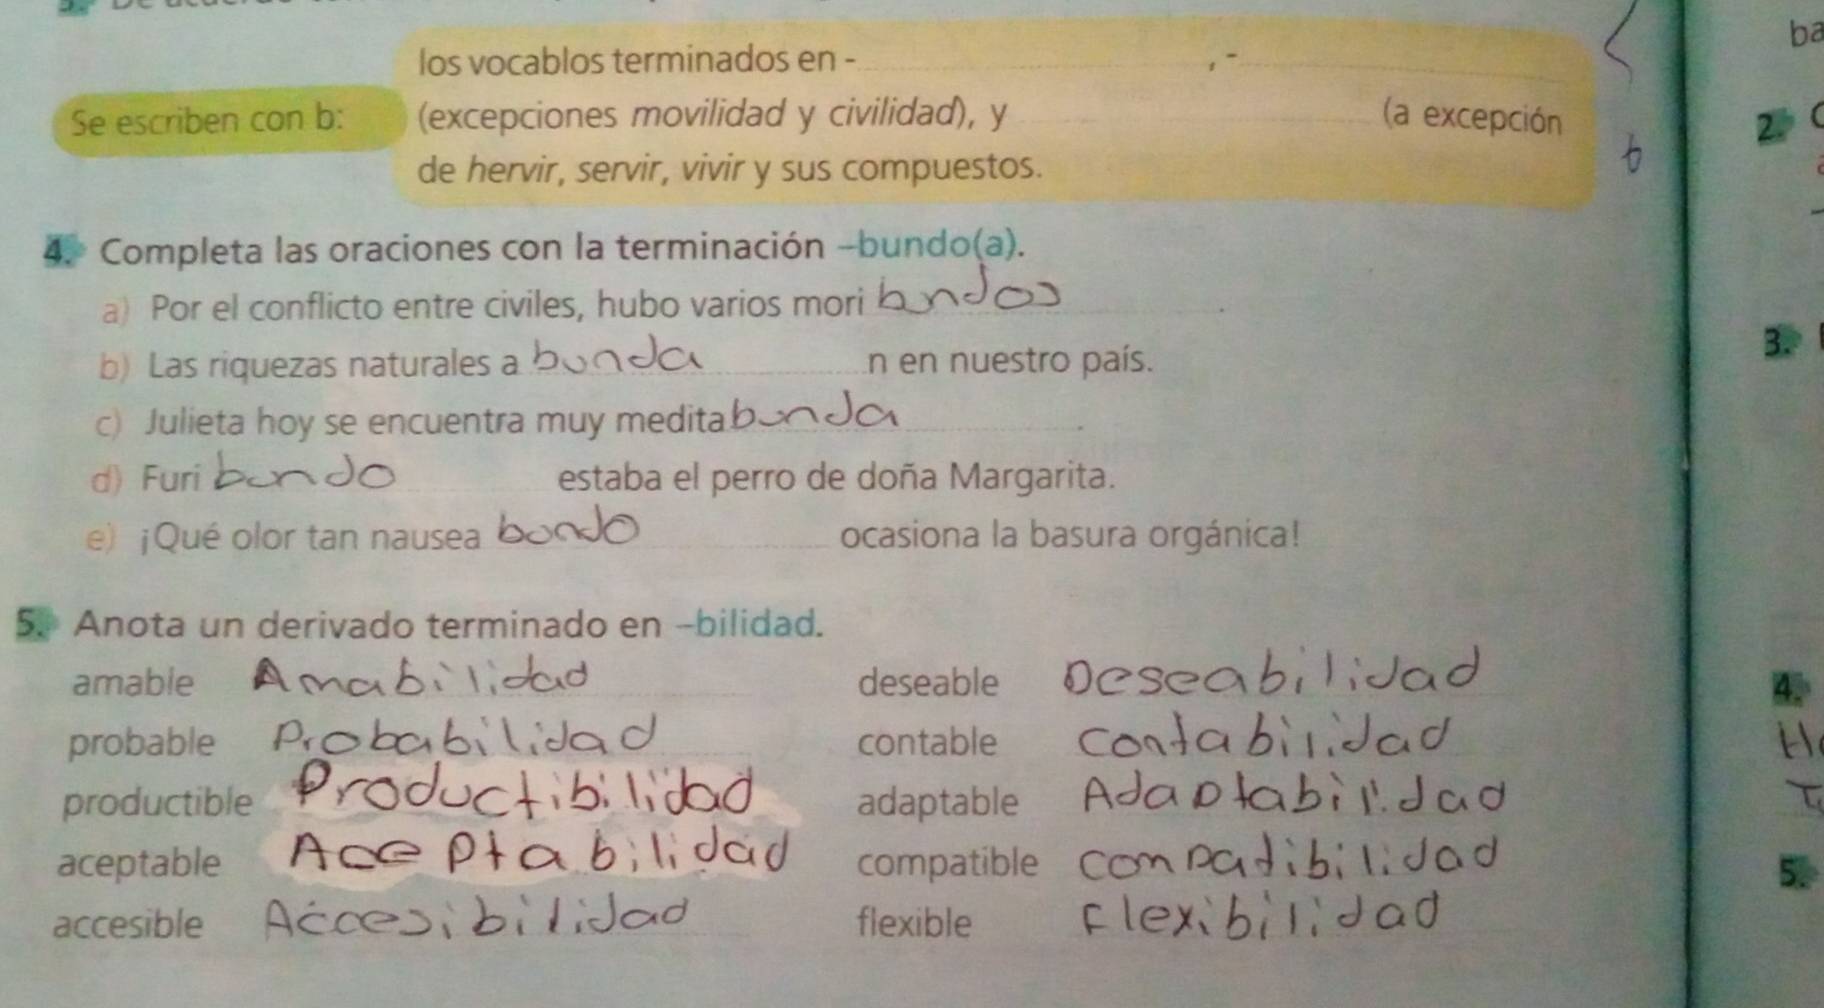 los vocablos terminados en - , -
Se escriben con b: (excepciones movilidad y civilidad), y (a excepción
de hervir, servir, vivir y sus compuestos.
b
4. Completa las oraciones con la terminación -bundo(a).
a) Por el conflicto entre civiles, hubo varios mori bndos .
b) Las riquezas naturales a bunda n en nuestro país.
c) Julieta hoy se encuentra muy medita bunda .
d) Furi bundo estaba el perro de doña Margarita.
e) ¡Qué olor tan nausea bundo ocasiona la basura orgánica!
5. Anota un derivado terminado en -bilidad.
amable Amabilidad deseable Deseabilidad
probable Probabilidad contable contabilidad
productible Productibilidad adaptable Adaptabilidad
aceptable Aceptabilidad compatible compatibilidad
accesible Accesibilidad flexible flexibilidad
ba
2.
3.
4.
5.